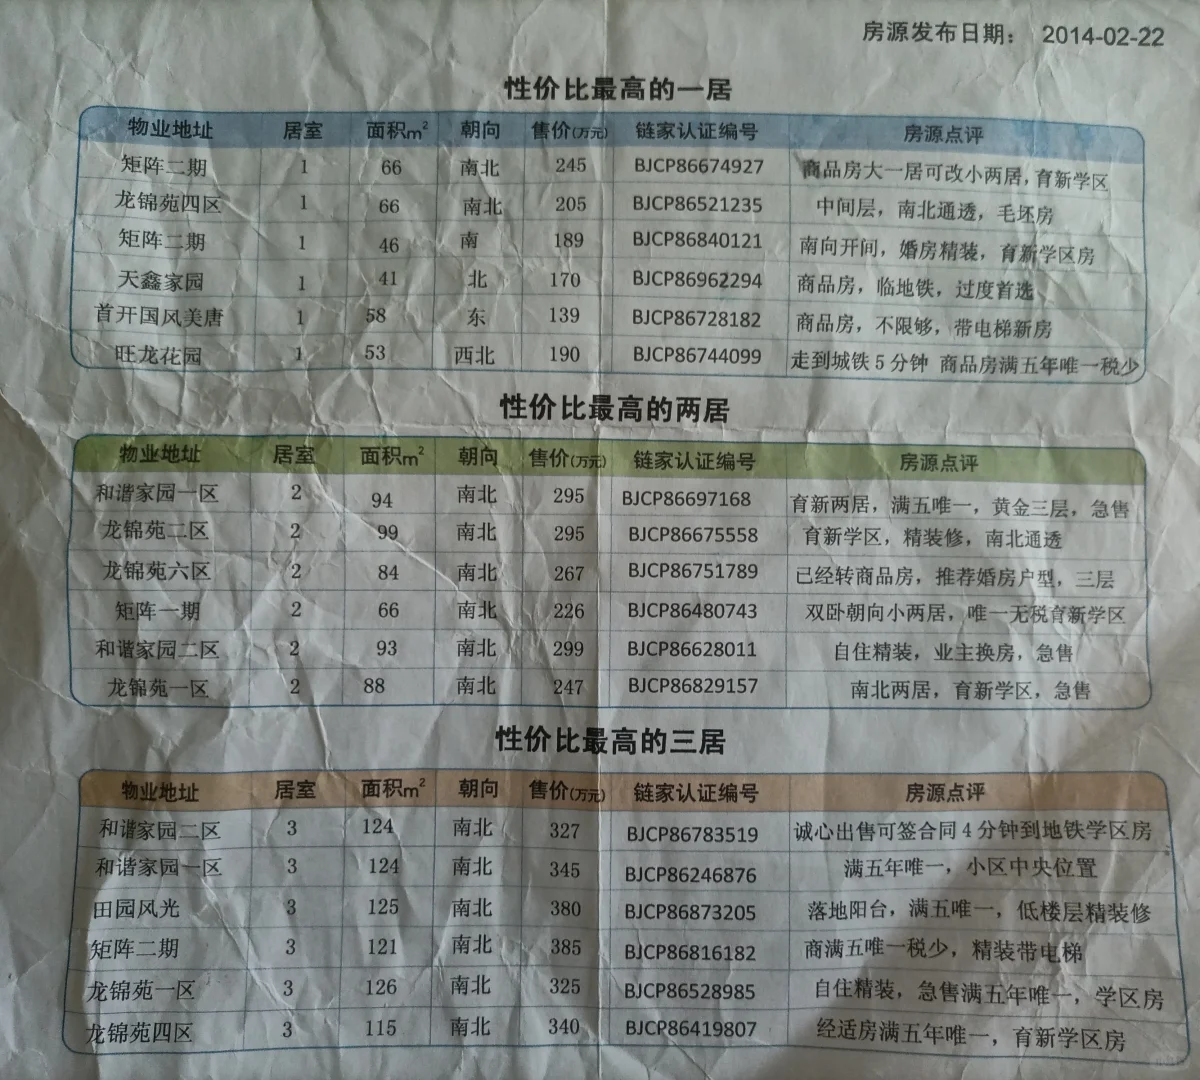 房源发布日期： 2014-02-22
性价比最高的一居
物业地址 居室 面积m² 朝向 售价(万元) 链家认证编号 房源点评
矩阵二期 1 66 南北 245 BJCP86674927 商品房大一居可改小两居，育新学区
龙锦苑四区 1 66 南北 205 BJCP86521235 中间层，南北通透，毛坯房
矩阵二期 1 46 南 189 BJCP86840121 南向开间，婚房精装，育新学区房
天鑫家园 1 41 北 170 BJCP86962294 商品房，临地铁，过度首选
首开国风美唐 1 58 东 139 BJCP86728182 商品房，不限够，带电梯新房
旺龙花园 1 53 西北 190 BJCP86744099 走到城铁5分钟 商品房满五年唯一税少
性价比最高的两居
物业地址 居室 面积m² 朝向 售价(万元) 链家认证编号 房源点评
和谐家园一区 2 94 南北 295 BJCP86697168 育新两居，满五唯一，黄金三层，急售
龙锦苑二区 2 99 南北 295 BJCP86675558 育新学区，精装修，南北通透
龙锦苑六区 2 84 南北 267 BJCP86751789 已经转商品房，推荐婚房户型，三层
矩阵一期 2 66 南北 226 BJCP86480743 双卧朝向小两居，唯一无税育新学区
和谐家园二区 2 93 南北 299 BJCP86628011 自住精装，业主换房，急售
龙锦苑一区 2 88 南北 247 BJCP86829157 南北两居，育新学区，急售
性价比最高的三居
物业地址 居室 面积m² 朝向 售价(万元) 链家认证编号 房源点评
和谐家园二区 3 124 南北 327 BJCP86783519 诚心出售可签合同4分钟到地铁学区房
和谐家园一区 3 124 南北 345 BJCP86246876 满五年唯一，小区中央位置
田园风光 3 125 南北 380 BJCP86873205 落地阳台，满五唯一，低楼层精装修
矩阵二期 3 121 南北 385 BJCP86816182 商满五唯一税少，精装带电梯
龙锦苑一区 3 126 南北 325 BJCP86528985 自住精装，急售满五年唯一，学区房
龙锦苑四区 3 115 南北 340 BJCP86419807 经适房满五年唯一，育新学区房